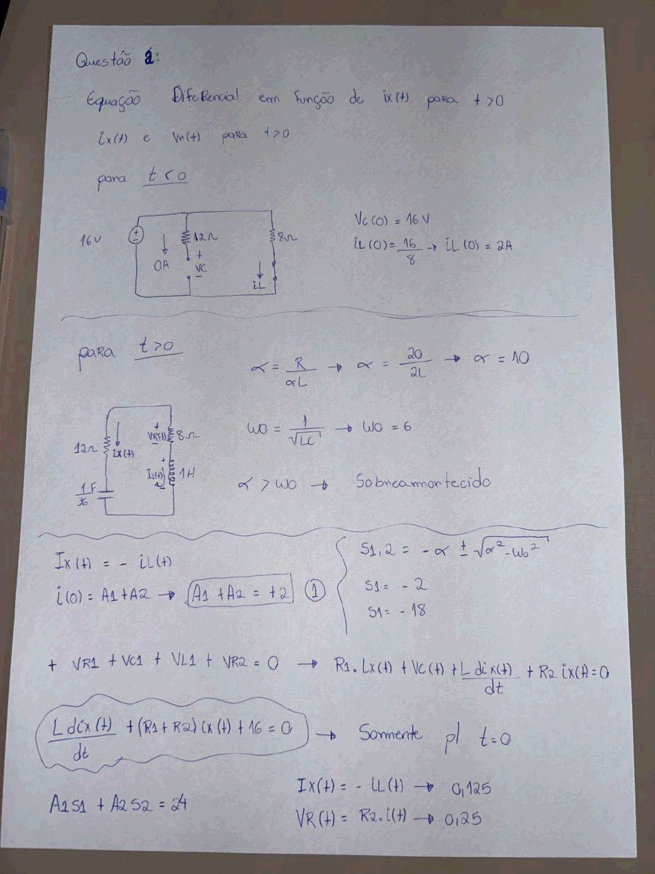 Questão 2:
Equação Diferencial em função de ix(t) para t>0
ix(t) e VR(t) para t>0
para t<0
16V
12Ω
8Ω
0A
+
VC
-
iL
Vc(0) = 16V
iL(0) = 16/8 → iL(0) = 2A
para t>0
α = R/αL → α = 20/2L → α = 10
12Ω
ix(t)
+
VR(t)
-
8Ω
1/36 F
+
IL(0)
-
1H
W0 = 1/√LC → W0 = 6
α > W0 → Sobreamortecido
Ix(t) = - iL(t)
i(0) = A1+A2 → A1 + A2 = +2 ①
S1,2 = -α ± √α²-W0²
S1 = - 2
S1 = - 18
+ VR1 + VC1 + VL1 + VR2 = 0 → R1.Lx(t) + VC(t) + L dix(t)/dt + R2 ix(t)=0
L dix(t)/dt + (R1+R2) ix(t) + 16 = 0 → Somente p/ t=0
A1S1 + A2S2 = 24
Ix(t) = - iL(t) → 0,125
VR(t) = R2.i(t) → 0,25